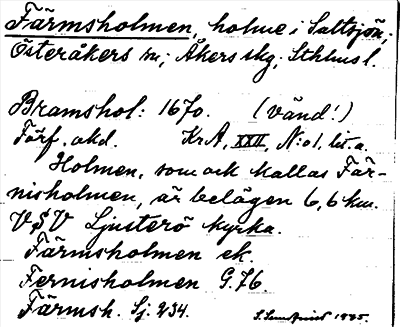 Färmsholmen, holme i Saltsjön;
Österåkers sn; Åkers skg, Sthlms l.
Bramshol: 1670. (Vänd!)
Förf. okd. KrA, XXII, N:o 1. lit. a.
Holmen, som ock kallas Fär-
nisholmen, är belägen 6,6 km.
V$V Ljusterö kyrka.
Färmsholmen ek.
Fernisholmen G. 76.
Färmsh. Sj. 234.
1935.